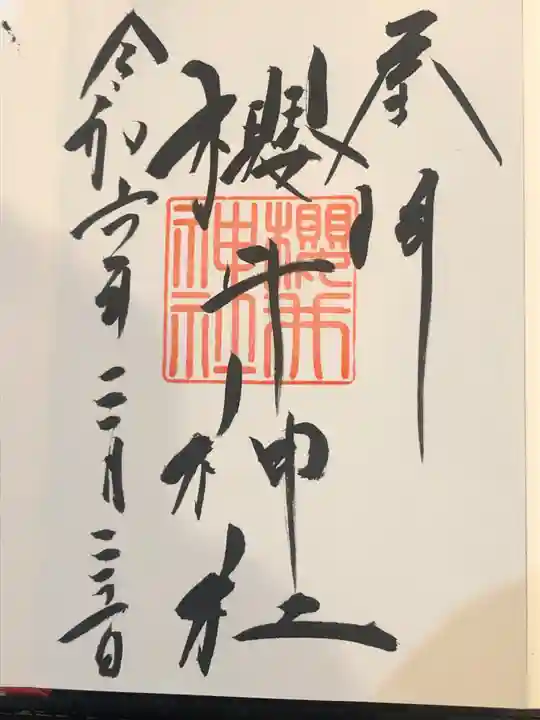 奉拝
櫻井神社
櫻井
神社
令和六年二月 日